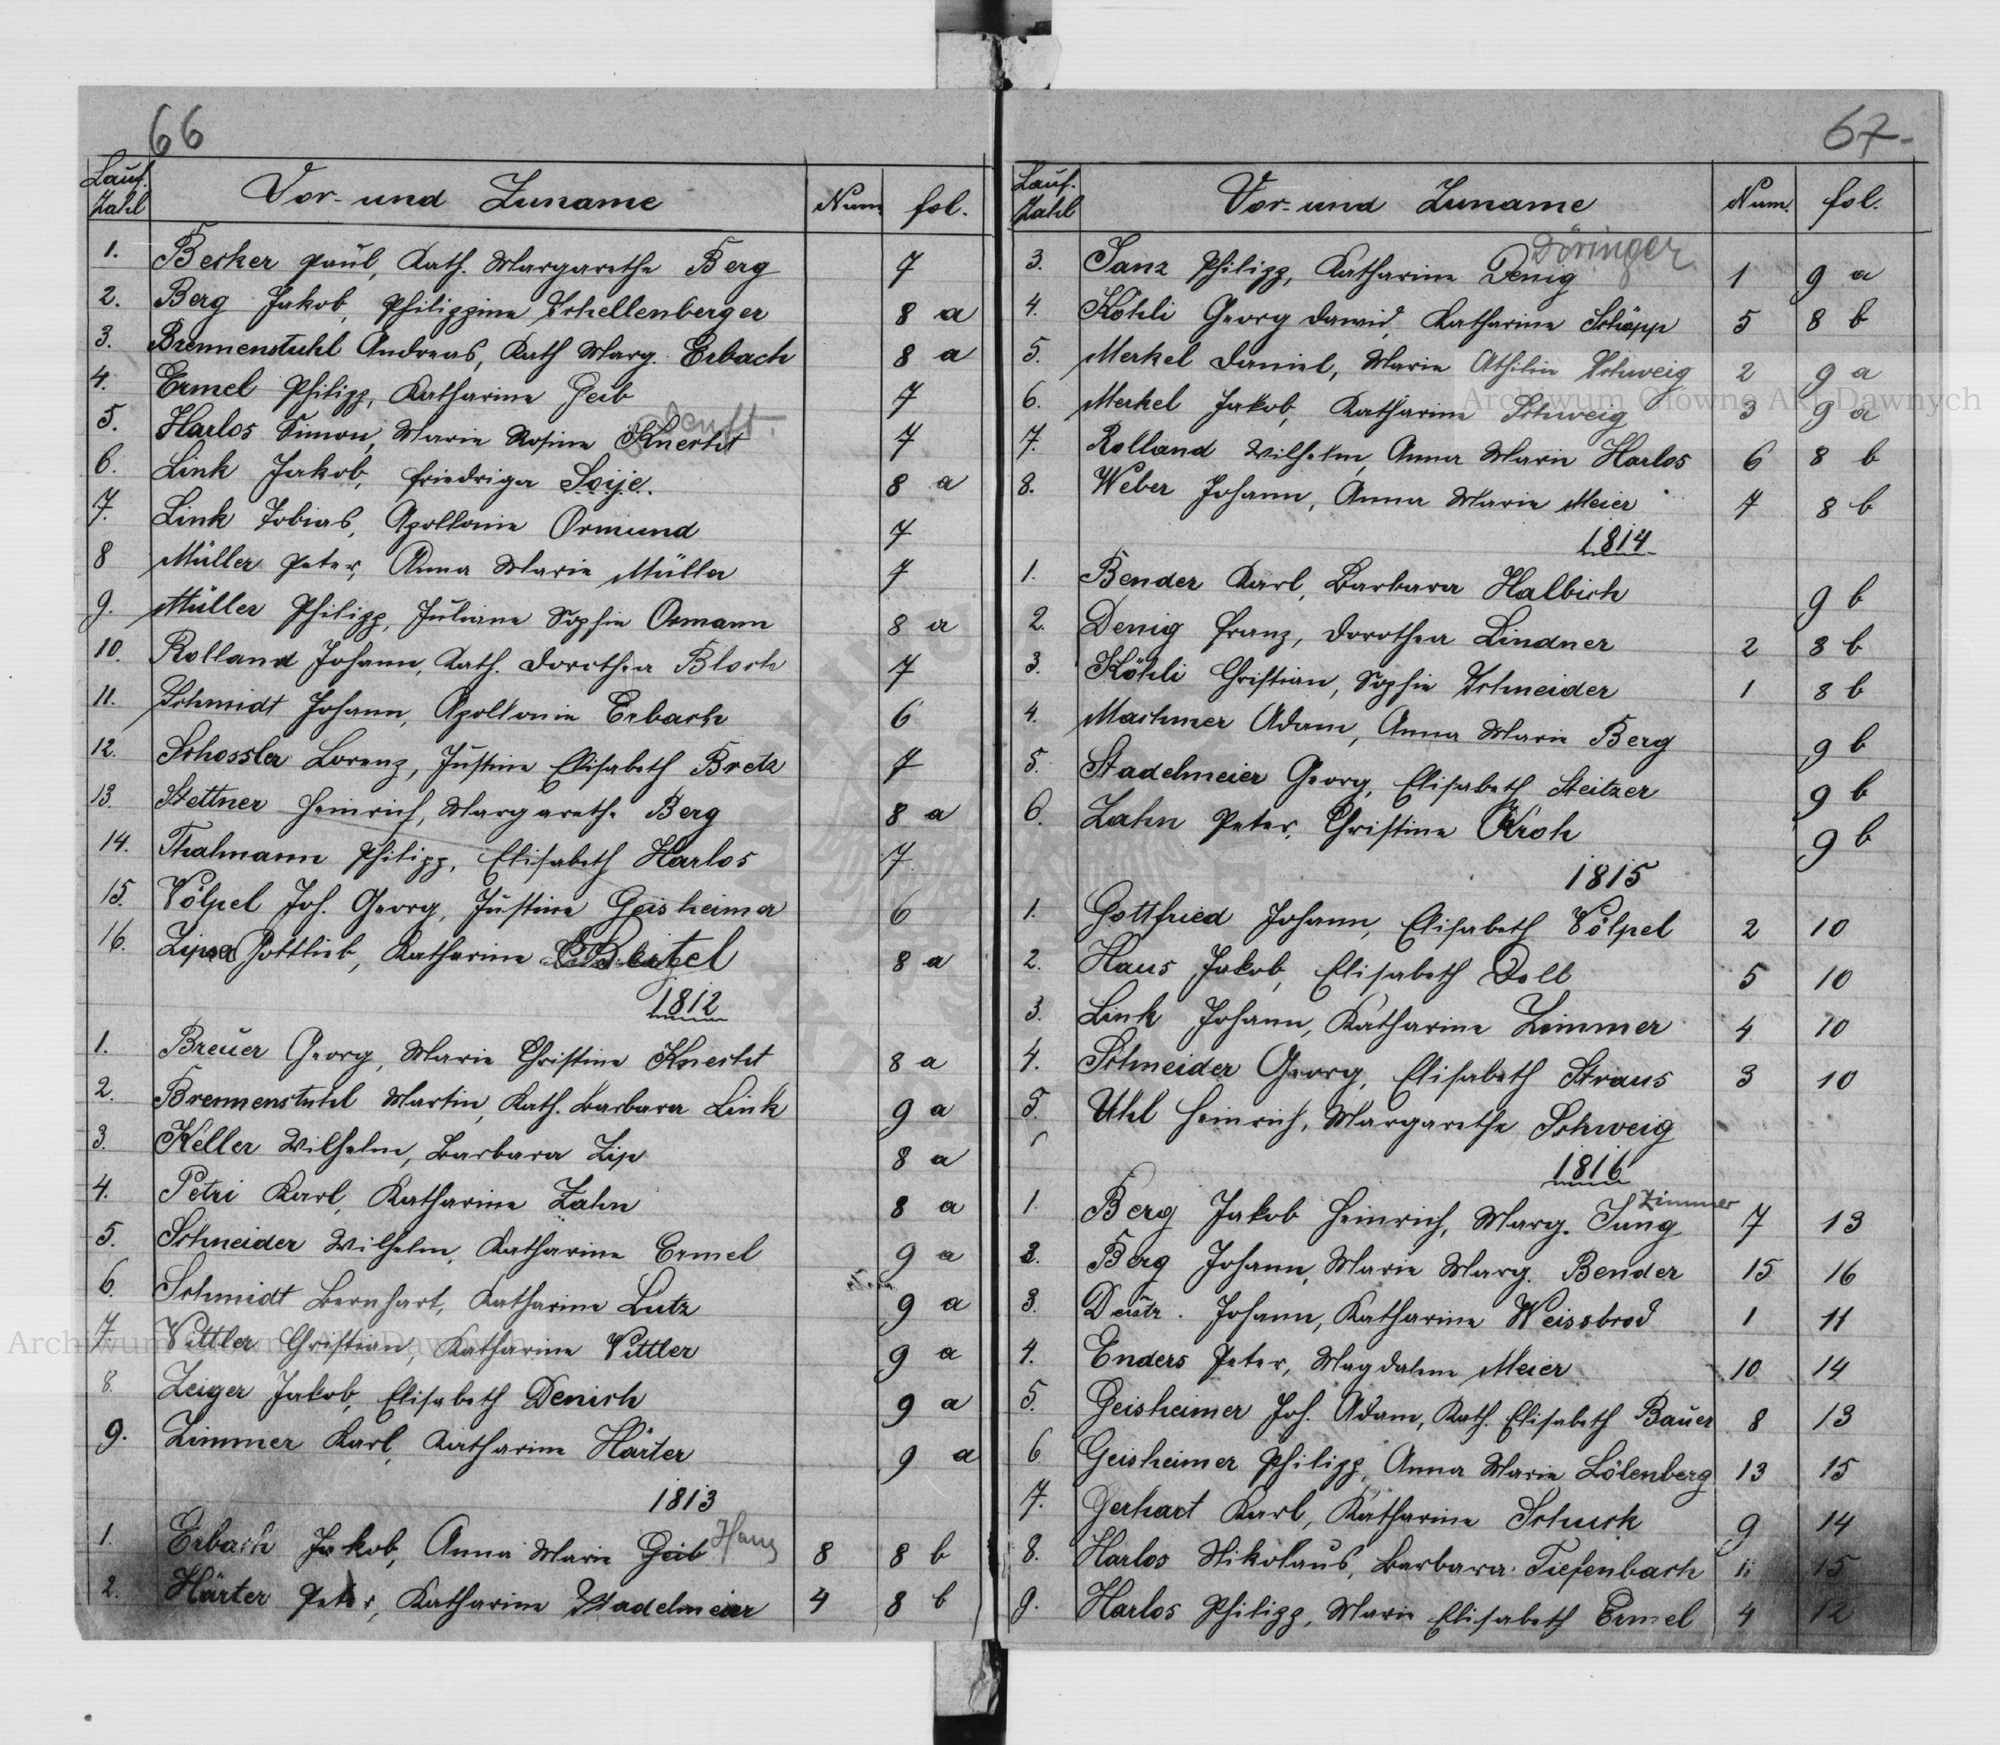 66
Lauf. Zahl Vor- und Zuname Num fol.
1. Becker Paul, Kath. Margarethe Berg 7
2. Berg Jakob, Philippine Schellenberger 8 a
3. Brennenstuhl Andreas, Kath Marg. Erbach 8 a
4. Ermel Philipp, Katharine Geib 7
Senft.
5. Harlos Simon, Marie Rosine Knecht 7
6. Link Jakob, Friedriga Soije. 8 a
7. Link Tobias, Apollonie Ormund 7
8 Müller Peter, Anna Marie Müller 7
9. Müller Philipp, Juliane Sophie Ormann 8 a
10. Rolland Johann, Kath. Dorothea Bloch 7
11. Schmidt Johann, Apollonie Erbach 6
12. Schossler Lorenz, Justine Elisabeth Bretz 7
13. Stettner Heinrich, Margarethe Berg 8 a
14. Thalmann Philipp, Elisabeth Harlos 7
15. Völpel Joh. Georg, Justine Geisheimer 6
16. Gottlieb, Katharine Beitzel 8 a
1812
1. Breuer Georg, Marie Christine Knecht 8 a
2. Brennenstuhl Martin, Kath. Barbara Link 9 a
3. Keller Wilhelm, Barbara Zip 8 a
4. Petri Karl, Katharine Zahn 8 a
5. Schneider Wilhelm, Katharine Ermel 9 a
6. Schmidt Bernhart, Katharine Lutz 9 a
7. Vittler Christian, Katharine Vittler 9 a
8. Zeiger Jakob, Elisabeth Denich 9 a
9. Zimmer Karl, Katharine Härter 9 a
1813
1. Erbach Jakob, Anna Marie Geib Haus 8 8 b
2. Härter Peter, Katharine Stadelmeier 4 8 b
67-
Lauf. Zahl Vor- und Zuname Num. fol.
Döringer
3. Janz Philipp, Katharine Denig 1 9 a
4. Köhli Georg Dawid, Katharine Schöpp 5 8 b
5. Merkel Daniel, Marie Athilie Schweig 2 9 a
6. Merkel Jakob, Katharine Schweig 3 9 a
7. Rolland Wilhelm, Anna Marie Harlos 6 8 b
8. Weber Johann, Anna Marie Meier 7 8 b
1814
1. Bender Karl, Barbara Halbich 9 b
2. Denig Franz, Dorothea Lindner 2 8 b
3. Köhli Christian, Sophie Schneider 1 8 b
4. Machmer Adam, Anna Marie Berg 9 b
5. Stadelmeier Georg, Elisabeth Steitzer 9 b
6. Zahn Peter, Christine Kroh 9 b
1815
1. Gottfried Johann, Elisabeth Völpel 2 10
2. Haus Jakob, Elisabeth Doll 5 10
3. Link Johann, Katharine Zimmer 4 10
4. Schneider Georg, Elisabeth Straus 3 10
5. Uhl Heinrich, Margarethe Schweig
1816
Zimmer
1. Berg Jakob Heinrich, Marg. Jung 7 13
2. Berg Johann, Marie Marg. Bender 15 16
3. Deutz. Johann, Katharine Weissbrod 1 11
4. Enders Peter, Magdalene Meier 10 14
5. Geisheimer Joh. Adam, Kath. Elisabeth Bauer 8 13
6 Geisheimer Philipp, Anna Marie Lölenberg 13 15
7. Gerhart Karl, Katharine Schuck 9 14
8. Harlos Nikolaus, Barbara Tiefenbach 11 15
9. Harlos Philipp, Marie Elisabeth Ermel 4 12
Archiwum Główne Akt Dawnych
Archiwum Główne Akt Dawnych